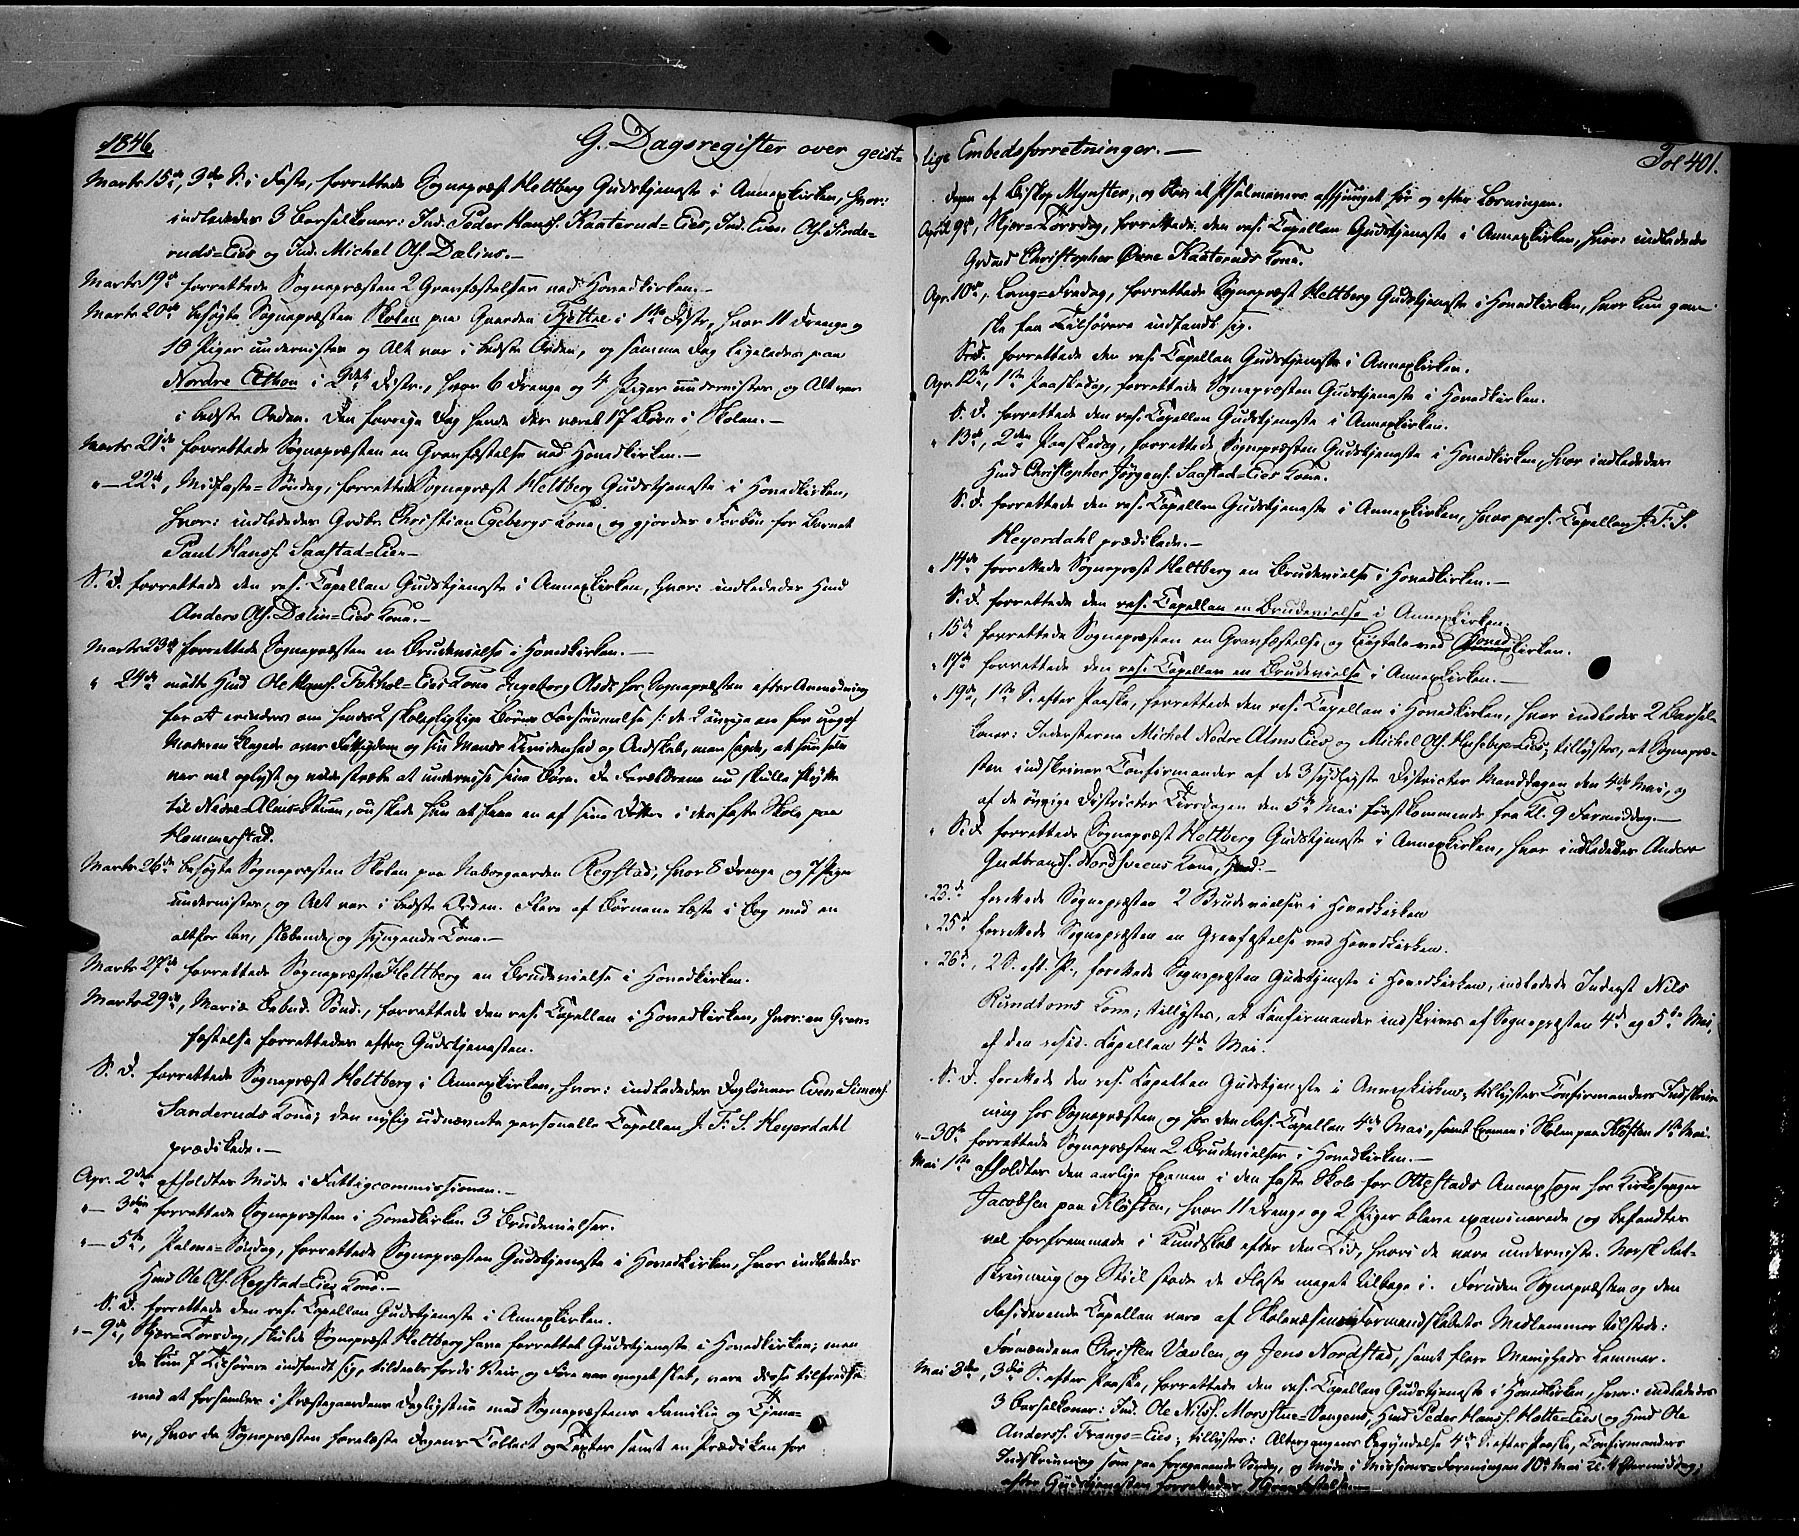 1846
G. Dagsregister over geist-
Marts 15de, 3de S. i Faste, forrettede Sognepræst Heltberg Gudstjeneste i Annexkirken, hvor:
indlededes 3 Barselkoner: Ind. Peder Hans. Kaaterud=Eies, Ind. Even Ols. Sinde-
ruds=Eies og Ind. Michel Ols. Dælins.—
Marts 19de forrettede Sognepræsten 2 Gravfæstelser ved Hovedkirken.—
Marts 20de besøgte Sognepræsten Skolen paa Gaarden Tjøttæ i 1ste Distr., hvor 11 Drenge og
10 Piger undervistes og Alt var i bedste Orden, og samme Dag ligeledes paa
Nordre Alhou i 2det Distr., hvor 6 Drenge og 4 Piger undervistes og Alt var
i bedste Orden. Den forrige Dag havde der været 17 Børn i Skolen.—
Marts 21de forrettede Sognepræsten en Gravfæstelse ved Hovedkirken.—
"—22de, Midfaste=Søndag, forrettede Sognepræst Heltberg Gudstjeneste i Hovedkirken,
hvor: indlededes Grdbr. Christian Egebergs Kone, og gjordes Forbøn for Barnet
Paul Hans. Saastad=Eie—
S. D. forrettede den res. Capellan Gudstjeneste i Annexkirken, hvor: indlededes Hmd
Anders Ols. Dælin=Eies Kone.—
Marts 23de forrettede Sognepræsten en Brudevielse i Hovedkirken.—
" 24de mødte Hmd Ole Hans. Fokhol=Eies Kone Ingeborg Olsdr for Sognepræsten efter Anmodning
for at erindres om hendes 2 skolepligtige Børns Forsømmelse /: de 2 øvrige ere for unge/
Moderen klagede over Fattigdom og sin Mands Ondskab, men sagde, at hun selv
var vel oplyst og underviste sine Børn. Da Forældrene nu skulle flytte
til Nedre=Alms=Stuen, ønskede hun at have en af sine Døttre i den faste Skole paa
Hommerstad.
Marts 26de besøgte Sognepræsten Skolen paa Nabogaarden Regstad, hvor 8 Drenge og 7 Piger
undervistes, og Alt var i bedste Orden. Flere af Børnene læste i Bog med en
altfor lav, slæbende og syngende Tone.—
Marts 27de forrettede Sognepræst Heltberg en Brudevielse i Hovedkirken.
Marts 29de, Mariæ Bebud. Sønd., forrettede den res. Capellan i Hovedkirken, hvor: en Grav-
fæstelse forrettedes efter Gudstjenesten.
S. D. forrettede Sognepræst Heltberg i Annexkirken, hvor: indlededes Daglønner Even Simens.
Sanderuds Kone; den nylig udnævnte personelle Capellan J. F. S. Heyerdahl
prædikede.—
Apr. 2den afholdtes Møde i Fattigcommissionen.—
"— 3die forrettede Sognepræsten i Hovedkirken 3 Brudevielser.
"— 5te, Palme=Søndag, forrettede Sognepræsten Gudstjeneste i Hovedkirken, hvor indlededes
Hmd Ole Ols. Regstad=Eies Kone.—
S. D. forrettede den res. Capellan Gudstjeneste i Annexkirken.
"— 9de, Skjær=Torsdag, skulde Sognepræst Heltberg have forrettet Gudstjeneste i Hovedkirken; men
da kun 7 Tilhørere indfandt sig, tildels fordi Veir og Føre var meget slet, vare disse tilfredse
med at forsamles i Præstegaardens Dagligstue med Sognepræstens Familie og Tjene-
re, hvor da Sognepræsten forelæste Dagens Collect og Texter samt en Prædiken for
lige Embedsforretninger.—
Fol 401.
Dagen af Biskop Mynster, og blev et Psalmevers afsjunget før og efter Læsningen.
April 9de, Skjær=Torsdag, forrettede den res. Capellan Gudstjeneste i Annexkirken, hvor: indlededes
Grdmd Christopher Øvre Kaateruds Kone.
Apr. 10de, Lang=Fredag, forrettede Sognepræst Heltberg Gudstjeneste i Hovedkirken, hvor kun gan-
ske faa Tilhørere indfandt sig.
S. D. forrettede den res. Capellan Gudstjeneste i Annexkirken.
Apr. 12te, 1ste Paaskedag, forrettede Sognepræsten Gudstjeneste i Hovedkirken.
S. D. forrettede den res. Capellan Gudstjeneste i Annexkirken.
" 13de, 2den Paaskedag, forrettede Sognepræsten Gudstjeneste i Hovedkirken, hvor indlededes
Hmd Christopher Jørgens. Saastad=Eies Kone.
S. D. forrettede den res. Capellan Gudstjeneste i Annexkirken, hvor pers. Capellan J. F. S.
Heyerdahl prædikede.—
" 14de forrettede Sognepræst Heltberg en Brudevielse i Hovedkirken.—
S. D. forrettede den res. Capellan en Brudevielse i Annexkirken.
" 15de forrettede Sognepræsten en Gravfæstelse og Liigtale ved Hovedkirken.
" 17de forrettede den res. Capellan en Brudevielse i Annexkirken.—
" 19de, 1ste S. efter Paaske, forrettede den res. Capellan i Hovedkirken, hvor indledes 2 Barsel-
koner: Inderstene Michel Nedre Alms Eies og Michel Ols. Huseby=Eies; tillystes, at Sognepræ-
sten indskriver Confirmander af de 3 sydligste Districter Manddagen den 4de Mai, og
af de øvrige Districter Tirsdagen den 5te Mai førstkommende fra Kl. 9 Formiddag.—
" S. D. forrettede Sognepræst Heltberg Gudstjeneste i Annexkirken, hvor indlededes Anders
Gudbrands. Nordsveens Kone, Hmd.—
" 23.de forrettede Sognepræsten 2 Brudevielser i Hovedkirken
" 25de forrettede Sognepræsten en Gravfæstelse ved Hovedkirken.
" 26de, 2 S. eft. P., forrettede Sognepræsten Gudstjeneste i Hovedkirken, indledede Inderst Nils
Rundtoms Kone; tillystes, at Confirmander indskrives af Sognepræsten 4de og 5te Mai,
af den resid. Capellan 4de Mai.
S. D. forrettede den res. Capellan Gudstjeneste i Annexkirken; tillystes Confirmanders Indskriv-
ning hos Sognepræsten og hos den Res. Capellan 4de Mai, samt Examen i Skolen paa Kløften 1ste Mai.
"—30te forrettede Sognepræsten 2 Brudevielser i Hovedkirken.—
Mai 1ste afholdtes den aarlige Examen i den faste Skole for Ottestads Annexsogn hos Kirkesanger
Jacobsen paa Kløften, hvor 11 Drenge og 2 Piger bleve examinerede og befandtes
vel forfremmede i Kundskab efter den Tid, hvori de vare underviste. Norsk Ret-
skrivning og Stiil stode de Fleste meget tilbage i. Foruden Sognepræsten og den
Residerende Capellan vare af Skolevæsenets Formandskabets Medlemmer tilstede:
Formændene Christen Vævlen og Jens Nordstad, samt flere Menigheds Lemmer.
Mai 3die, 3die S. efter Paaske, forrettede den res. Capellan Gudstjeneste i Hovedkirken, hvor: indlededes
3 Barselkoner: Ind. Ole Nils. Morstue=Vangens, Hmd Peder Hans. Hotte=Eies og Hmd Ole
Anders. Frangs=Eies; tillystes: Altergangens Begyndelse 4de S. efter Paaske, Confirmanders
Indskrivning som paa foregaaende Søndag, og Møde i Missions=Foreningen 10de Mai Kl. 4 Eftermiddag;
efter Gudstjenesten forrettedes 1 Gravfæstelse.—